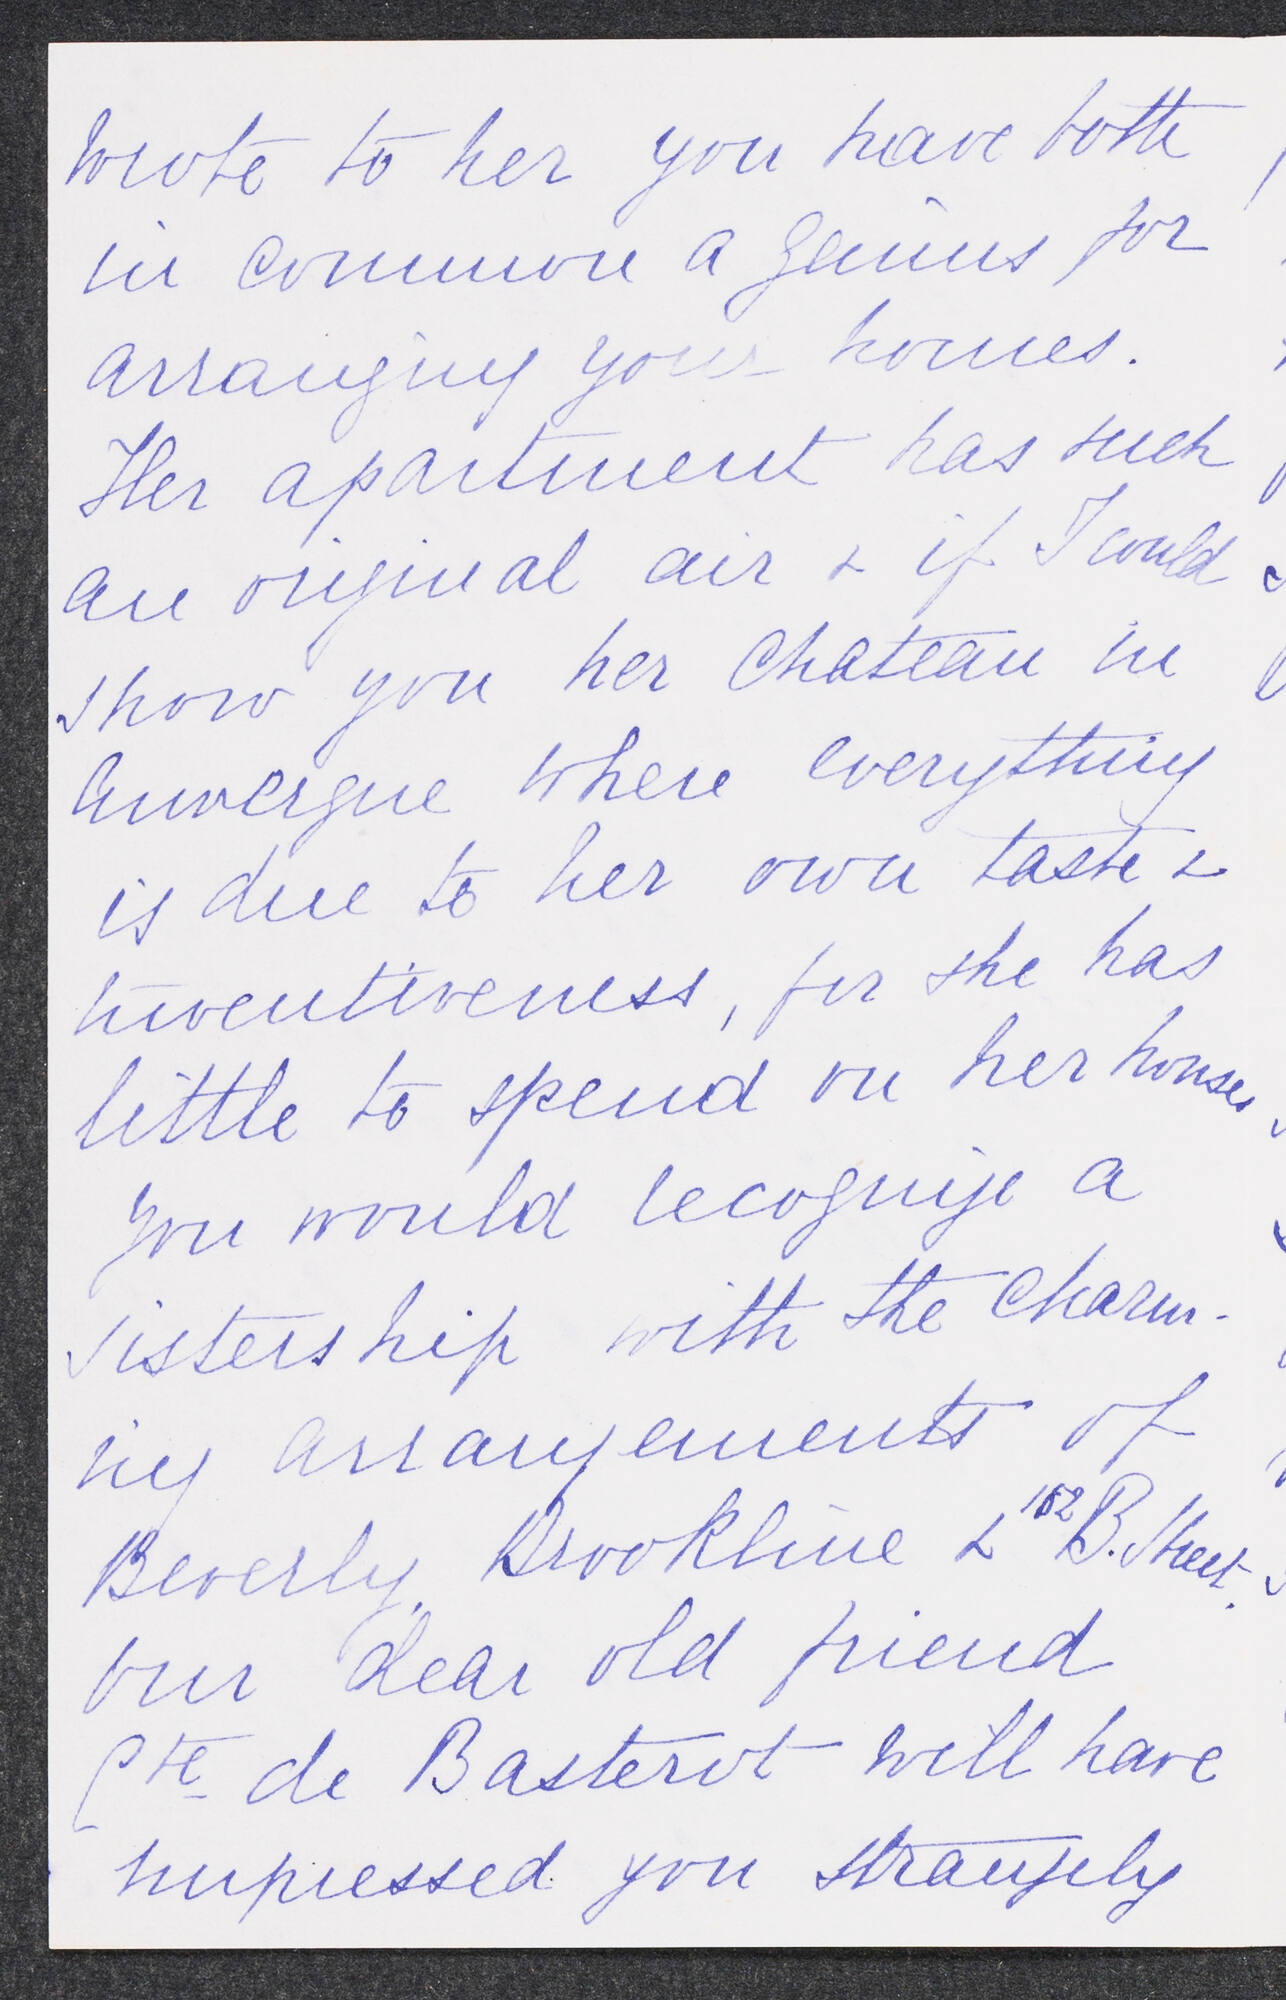 wrote to her you have both
in common a genius for
arranging your homes.
Her apartment has such
an original air & if I could
show you her Chateau in
Auvergne where everything
is due to her own taste &
inventiveness, for she has
little to spend on her houses
You would recognize a
sistership with the Charm-
ing arrangements of
Beverly, Brookline & 152 B. Street.
Our dear old friend
Cte de Basterot will have
impressed you strangely